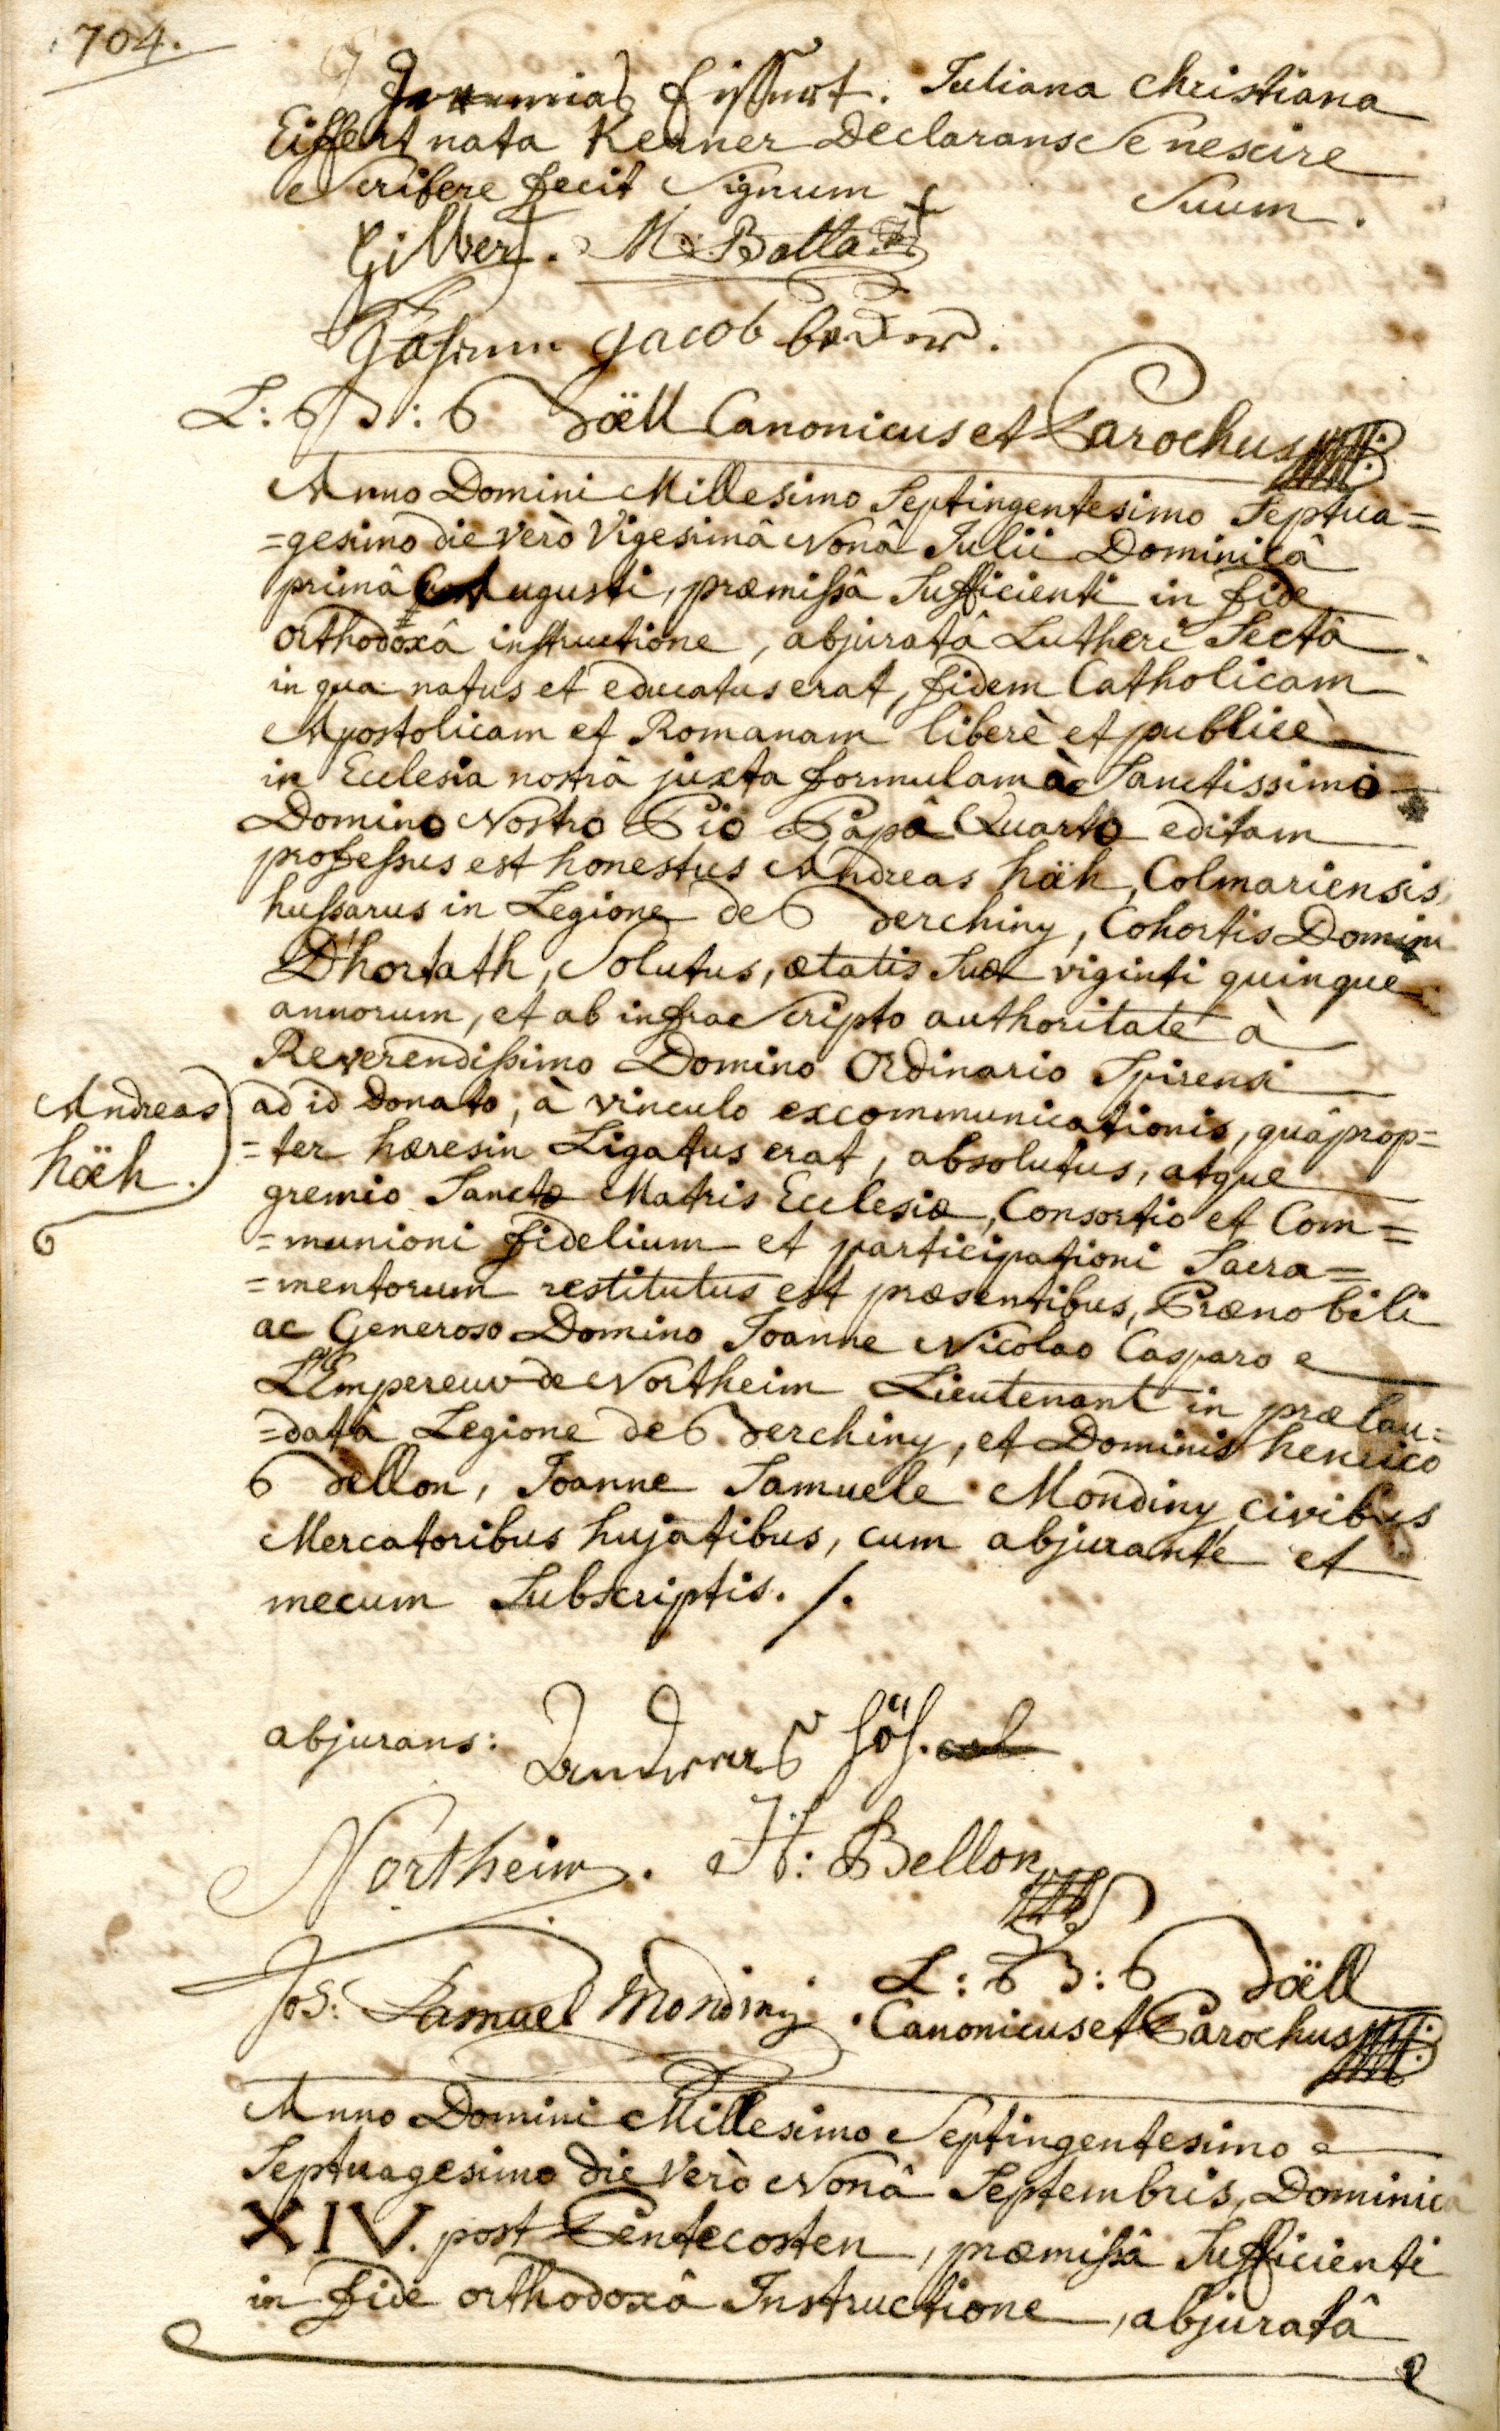 704.
Jeremias Eissert. Juliana Christiana
Eissert nata Kerner Declarans Se nescire
Scribere fecit Signum + Suum.
Gilbert. M: Balla
Johann Jacob
L: B: Böell Canonicus et Parochus
Anno Domini Millesimo Septingentesimo Septua=
=gesimo die verò Vigesimâ Nonâ Julii Dominicâ
primâ Augusti, præmissâ Sufficienti in fide
orthodoxâ instructione, abjuratâ Lutheri Sectâ
in qua natus et educatus erat, fidem Catholicam
Apostolicam et Romanam liberè et publicè
in Ecclesia nostrâ juxta formulam à Sanctissimo
Domino Nostro Pio Papâ Quarto editam
professus est honestus Andreas häh, Colmariensis,
hussarus in Legione de Berchiny, Cohortis Domini
D'hortath, Solutus, ætatis Suæ viginti quinque
annorum, et ab infrae Scripto authoritate à
Reverendissimo Domino Ordinario Spirensi
Andreas häh.
ad id Donato, à vinculo excommunicationis, quâ prop=
=ter hæresin Ligatus erat, absolutus, atque
gremio Sanctæ Matris Ecclesiæ, Consortio et Com=
=munioni fidelium et participationi Sacra=
=mentorum restitutus est præsentibus, Prænobili
ac Generoso Domino Joanne Nicolao Casparo
L'Empereur de Northeim Lieutenant in prælau=
=datâ Legione de Berchiny, et Dominis henrico
Bellon, Joanne Samuele Mondiny civibus
Mercatoribus hujatibus, cum abjurante et
mecum Subscriptis. /.
abjurans: Andreas Höh.
Northeim. H: Bellon
Jos: Samuel Mondiny. L: B: Böell
Canonicus et Parochus
Anno Domini Millesimo Septingentesimo
Septuagesimo die verò Nonâ Septembris, Dominicâ
XIV. post Pentecosten, præmissâ Sufficienti
in fide orthodoxâ Instructione, abjuratâ